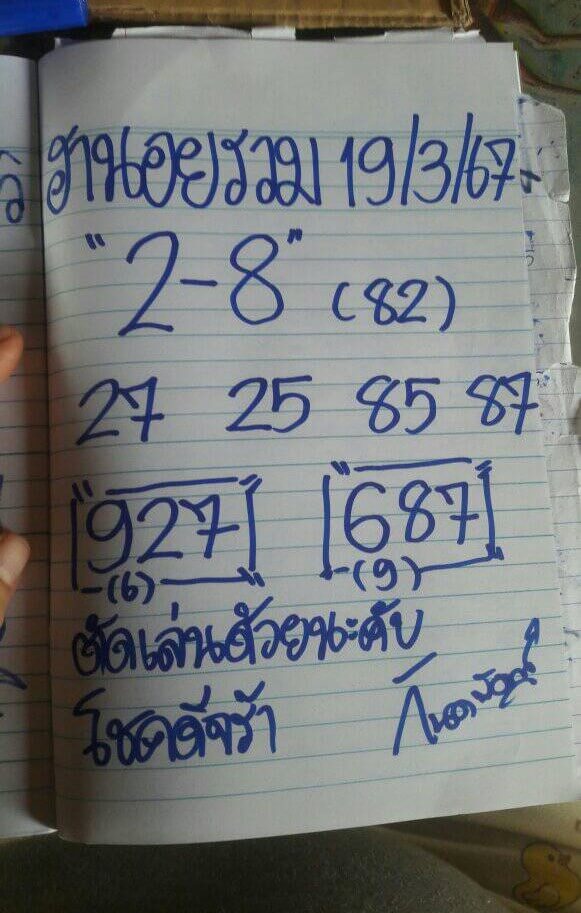 ฮานอยรวม 19/3/67
"2-8" (82)
27 25 85 87
"927" "687"
(6) (9)
ตัดเล่นด้วยนะคับ
โชคดีจร้า